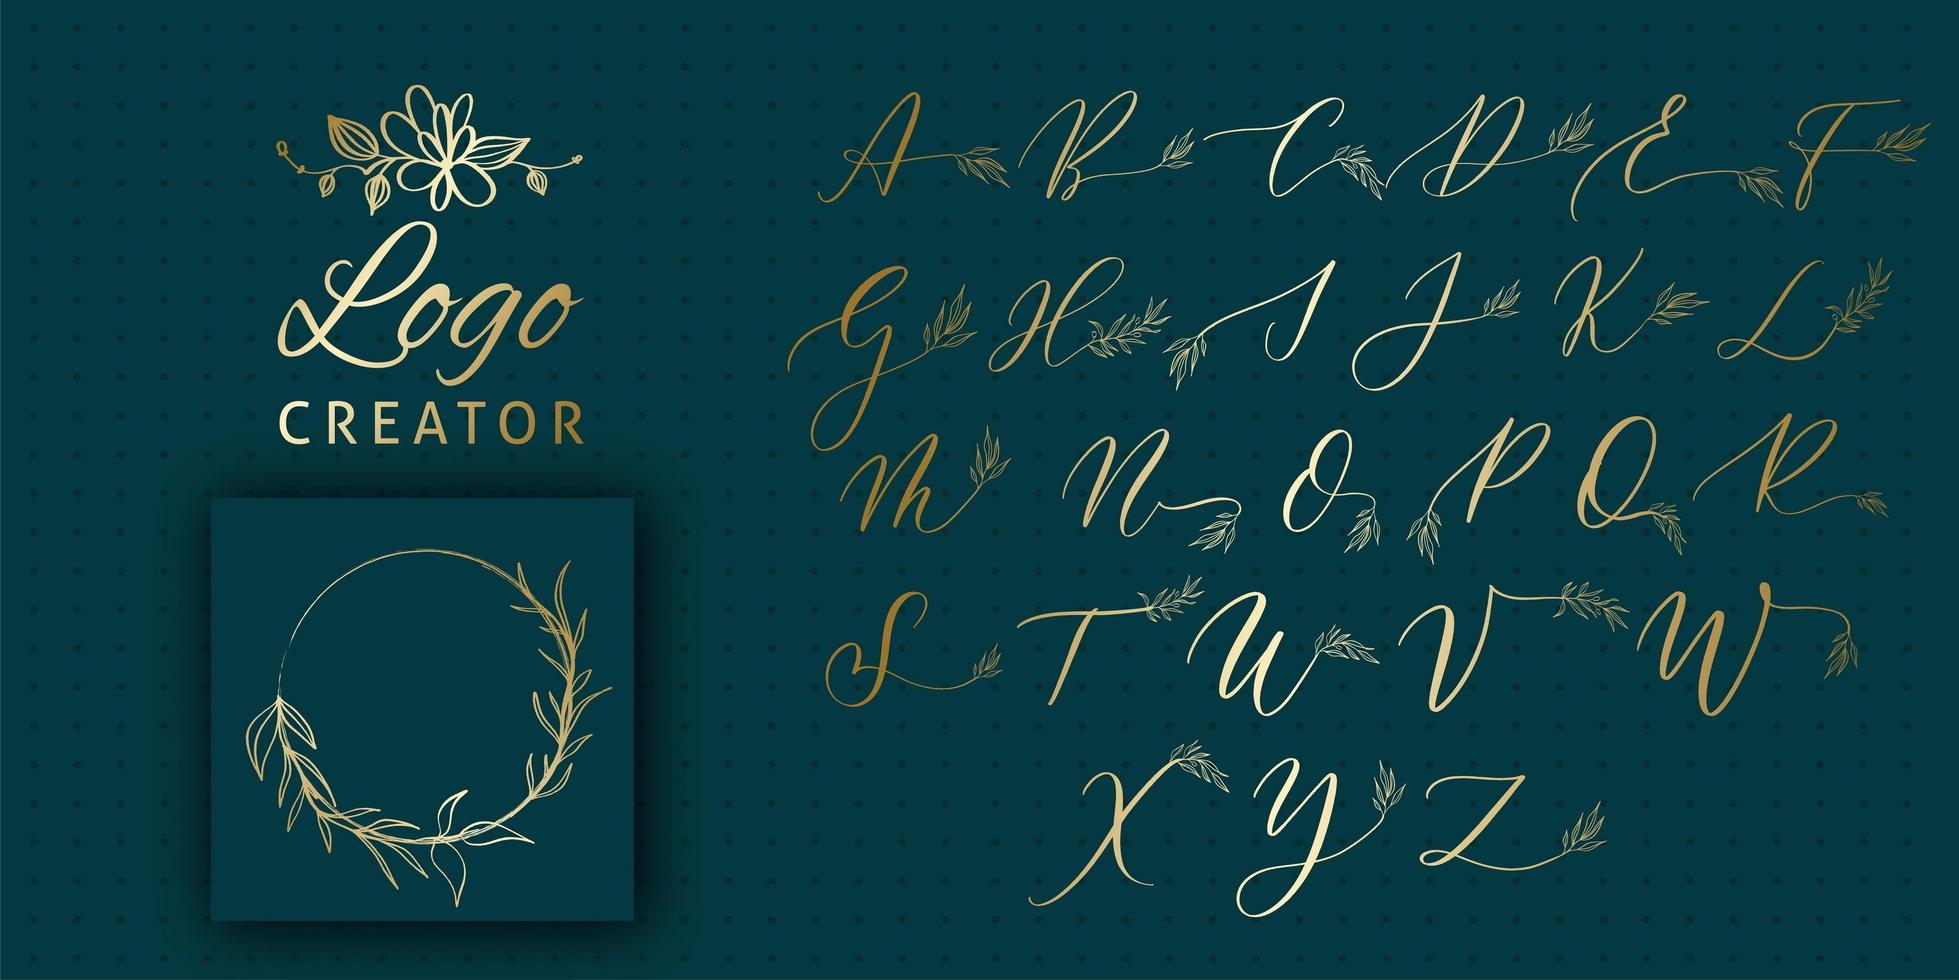 Logo
CREATOR
A B C D E F
G H I J K L
M N O P Q R
S T U V W
X Y Z